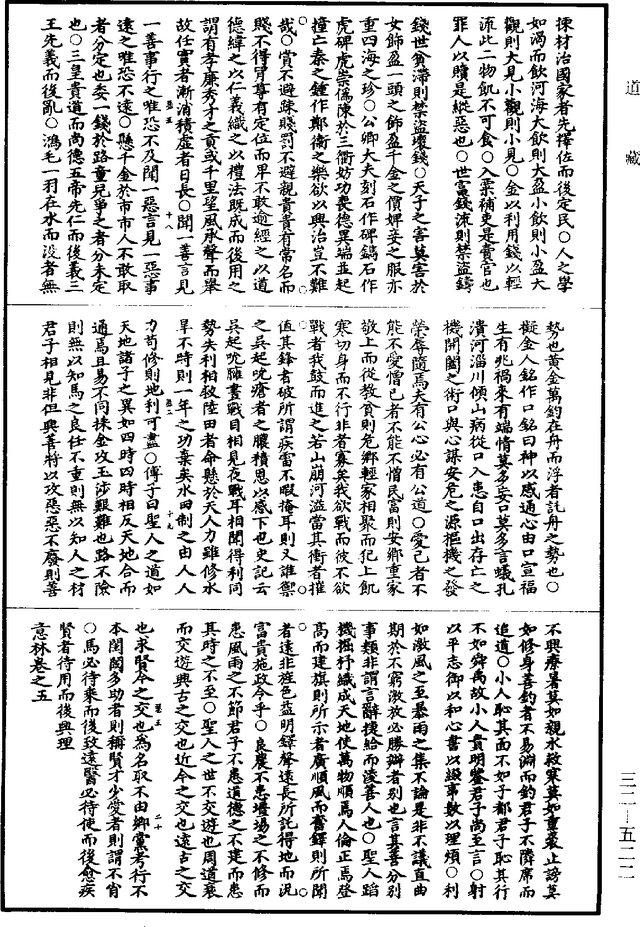 道藏
揀材治國家者先擇佐而後定民○人之學
如渴而飲河海大飲則大盈小飲則小盈大
觀則大見小觀則小見○金以利用錢以輕
流此二物飢不可食○入粟補吏是賣官也
罪人以贖是縱惡也○世富錢流則禁盜鑄
錢世貧滯則禁盜壞錢○天子之害莫害於
女飾盈一頭之飾盈千金之價婢妾之服亦
重四海之珍○公卿大夫刻石作碑鐫石作
虎碑虎崇僞陳於三衢妨功喪德異端並起
撞亡秦之鍾作鄭衞之樂欲以興治豈不難
哉○賞不避疎賤罰不避親貴貴有常名而
賤不得冒尊有定位而卑不敢逾經之以道
德緯之以仁義織之以禮法既成而後用之
謂有孝廉秀才之貢或千里望風承聲而舉
故任實者漸消積虛者日長○聞一善言見
一善事行之唯恐不及聞一惡言見一惡事
遠之唯恐不遠○懸千金於市市人不敢取
者分定也委一錢於路童兒爭之者分未定
也○三皇貴道而尚德五帝先仁而後義三
王先義而後亂○鴻毛一羽在水而沒者無
勢也黃金萬鈞在舟而浮者託舟之勢也○
擬金人銘作口銘曰神以感通心由口宣福
生有兆禍來有端情莫多妄口莫多言蟻孔
潰河溜川傾山病從口入患自口出存亡之
機開闔之術口與心謀安危之源樞機之發
榮辱隨焉夫有公心必有公道○愛己者不
能不愛憎己者不能不憎民富則安鄉重家
敬上而從教貧則危鄉輕家相聚而犯上飢
寒切身而不行非者寡矣我欲戰而彼不欲
戰者我鼓而進之若山崩河溢當其衝者摧
值其鋒者破所謂疾雷不暇掩耳則又誰禦
之吳起吮瘡者之膿積恩以感下也史記云
吳起吮膿晝戰目相見夜戰耳相聞得利同
勢失利相救陸田者命懸於天人力雖修水
旱不時則一年之功棄矣水田制之由人人
力苟修則地利可盡○傅子曰聖人之道如
天地諸子之異如四時四時相反天地合而
通焉且易不同採金攻玉涉艱難也路不險
則無以知馬之良任不重則無以知人之材
君子相見非但興善將以攻惡惡不廢則善
不興療暑莫如親水救寒莫如重裘止謗莫
如修身善釣者不易淵而釣君子不隮席而
追道○小人恥其面不如子都君子恥其行
不如舜禹故小人貴明鑒君子尚至言○射
以平志御以和心書以綴事數以理煩○利
如激風之至暴雨之集不論是非不議直曲
期於不窮激放必勝辯者別也言其善分別
事類非謂言辭捷給而淩善人也○聖人蹈
機握杼織成天地使萬物順焉人倫正焉登
高而建旗則所示者廣順風而奮鐸則所聞
者遠非旌色益明鐸聲遠長所託得地而況
富貴施政令乎○良農不患壃場之不修而
患風雨之不節君子不患道德之不建而患
其時之不至○聖人之世不交遊也周道衰
而交遊興古之交也近今之交也遠古之交
也求賢今之交也為名取不由鄉黨考行不
本閥閱多助者則稱賢才少愛者則謂不肖
○馬必待乘而後致遠醫必待使而後愈疾
賢者待用而後興理
意林卷之五
三二—五二二